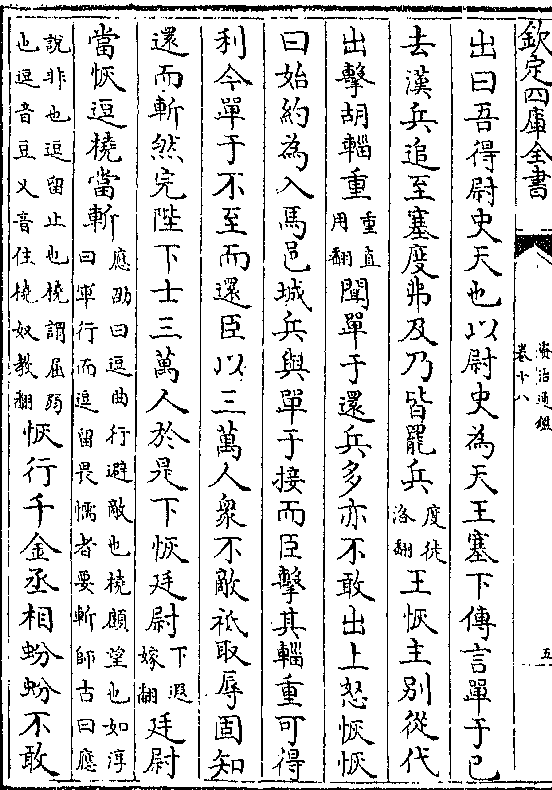 欽定四庫全書
資治通鑑
卷十八
五
出曰吾得尉史天也以尉史為天王塞下傳言單于已
去漢兵追至塞度弗及乃皆罷兵度徒洛翻王恢主别從代
出擊胡輜重重直用翻聞單于還兵多亦不敢出上怒恢恢
曰始約為入馬邑城兵與單于接而臣擊其輜重可得
利今單于不至而還臣以三萬人衆不敵祗取辱固知
還而斬然完陛下士三萬人於是下恢廷尉下遐嫁翻廷尉
當恢逗橈當斬應劭曰逗曲行避敵也橈顧望也如淳曰軍行而逗留畏懦者要斬師古曰應
說非也逗留止也橈謂屈弱也逗音豆又音住橈奴教翻恢行千金丞相蚡蚡不敢